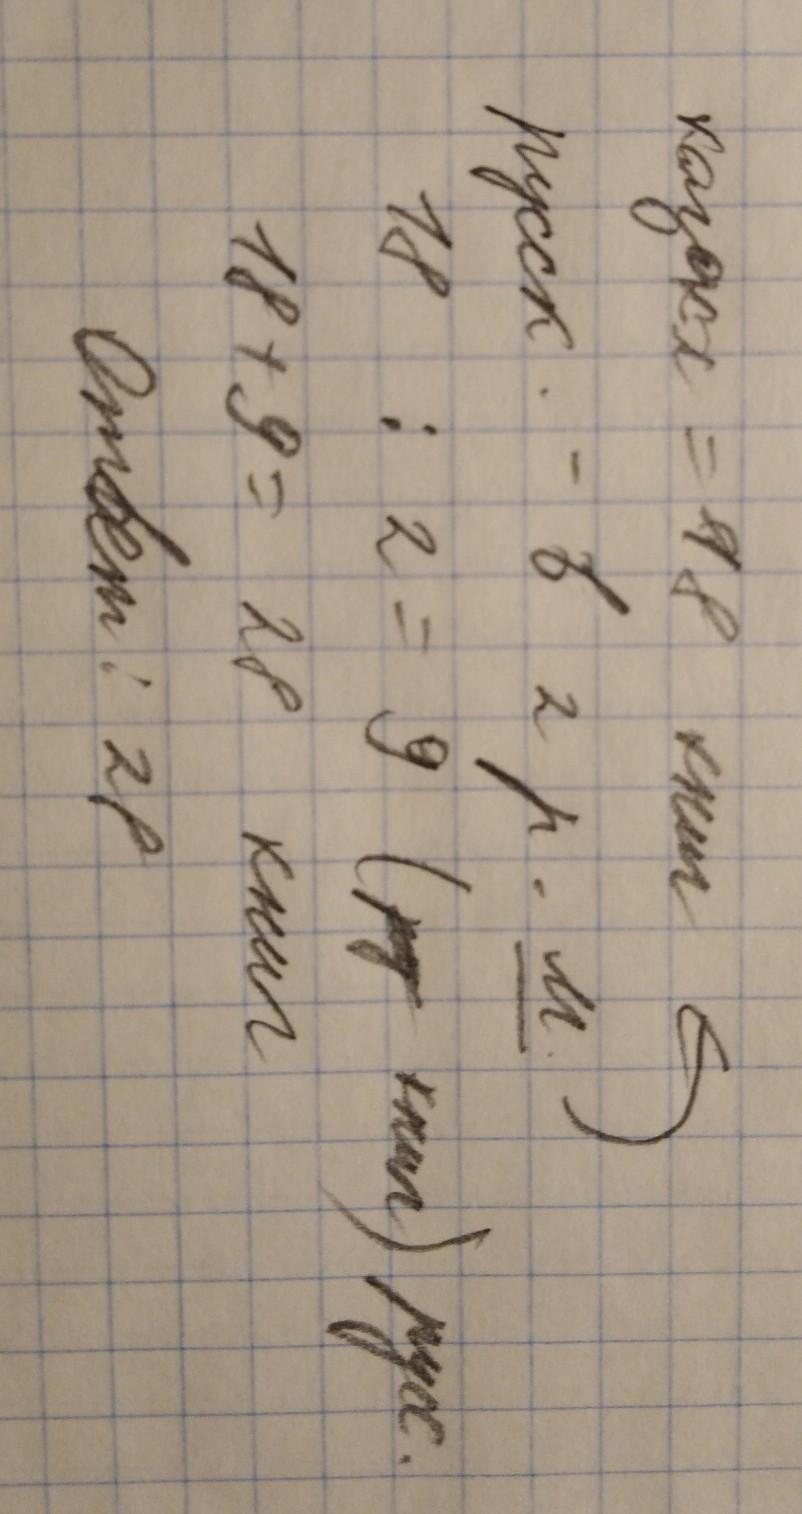 казахск = 18 книг
русск. - в 2 р. м.
18 : 2 = 9 (книг) русс.
18 + 9 = 28 книг
Ответ: 28